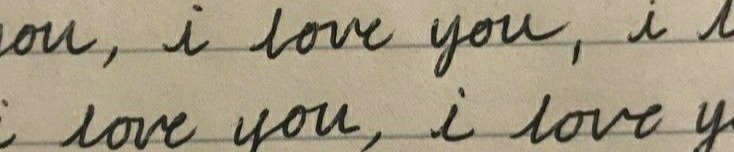 you, i love you, i l
i love you, i love y